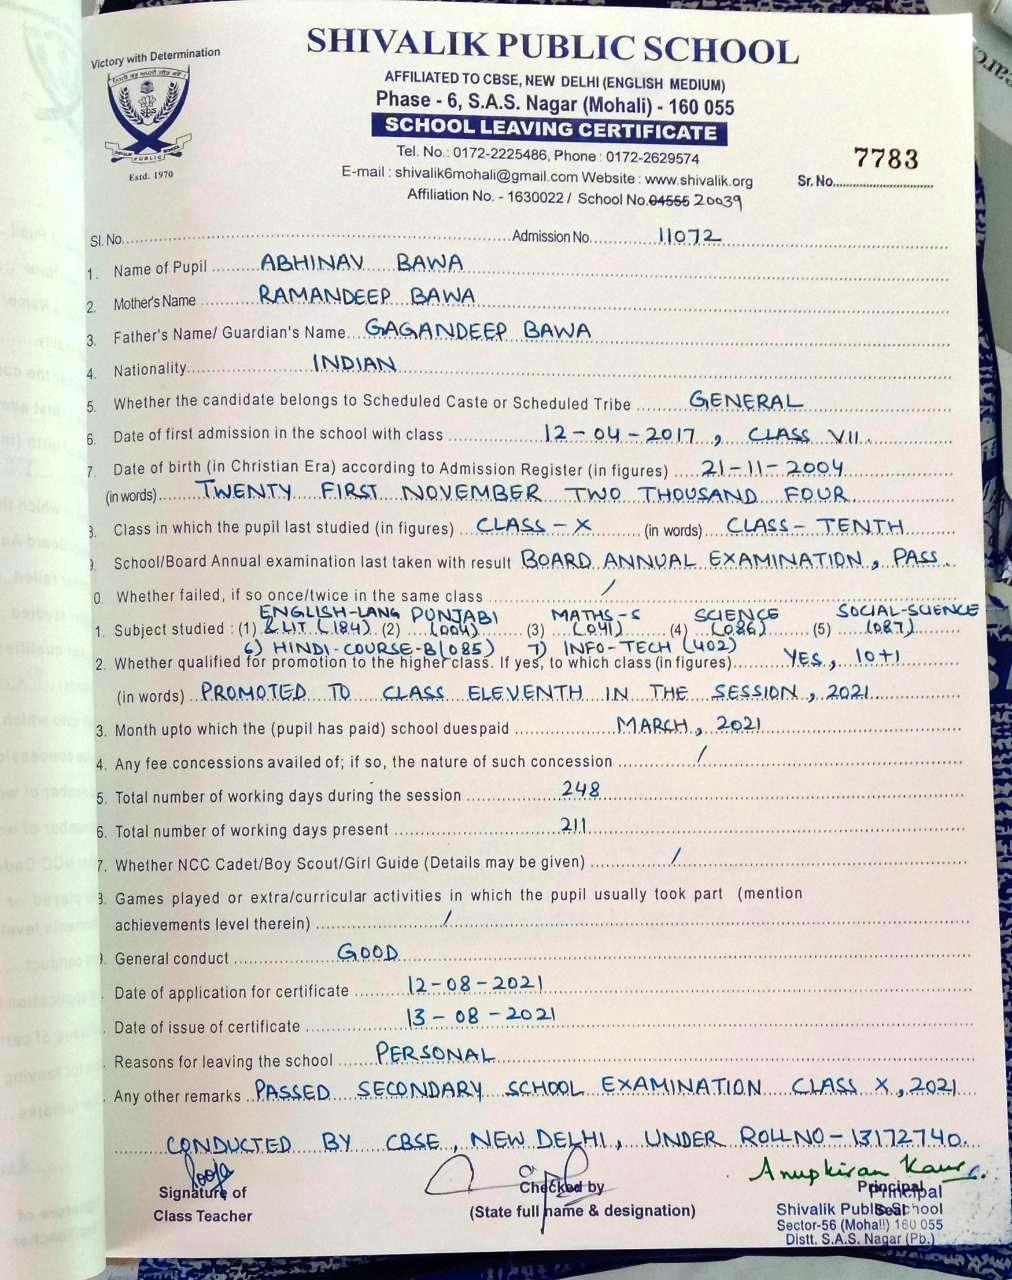 Victory with Determination
SHIVALIK PUBLIC SCHOOL
AFFILIATED TO CBSE, NEW DELHI (ENGLISH MEDIUM)
Phase - 6, S.A.S. Nagar (Mohali) - 160 055
SCHOOL LEAVING CERTIFICATE
Tel. No.: 0172-2225486, Phone : 0172-2629574
E-mail : shivalik6mohali@gmail.com Website : www.shivalik.org
Affiliation No. - 1630022 / School No. 04555 20039
PUBLIC
Estd. 1970
7783
Sr. No.
Sl. No. Admission No. 11072
1. Name of Pupil ABHINAV BAWA
2. Mother's Name RAMANDEEP BAWA
3. Father's Name/ Guardian's Name GAGANDEEP BAWA
4. Nationality INDIAN
5. Whether the candidate belongs to Scheduled Caste or Scheduled Tribe GENERAL
6. Date of first admission in the school with class 12-04-2017, CLASS VII.
7. Date of birth (in Christian Era) according to Admission Register (in figures) 21-11-2004
(in words) TWENTY FIRST NOVEMBER TWO THOUSAND FOUR
Class in which the pupil last studied (in figures) CLASS-X (in words) CLASS-TENTH
School/Board Annual examination last taken with result BOARD ANNUAL EXAMINATION, PASS.
0. Whether failed, if so once/twice in the same class /
ENGLISH-LANG PUNJABI MATHS-S SCIENCE SOCIAL-SCIENCE
1. Subject studied : (1) & LIT (184) (2) (004) (3) (041) (4) (086) (5) (087)
6) HINDI-COURSE-B(085) 7) INFO-TECH (402)
2. Whether qualified for promotion to the higher class. If yes, to which class (in figures) YES, 10+1
(in words) PROMOTED TO CLASS ELEVENTH IN THE SESSION, 2021
3. Month upto which the (pupil has paid) school duespaid MARCH, 2021
4. Any fee concessions availed of; if so, the nature of such concession /
5. Total number of working days during the session 248
6. Total number of working days present 211
7. Whether NCC Cadet/Boy Scout/Girl Guide (Details may be given) /
8. Games played or extra/curricular activities in which the pupil usually took part (mention
achievements level therein) /
General conduct GOOD
Date of application for certificate 12-08-2021
Date of issue of certificate 13-08-2021
Reasons for leaving the school PERSONAL
Any other remarks PASSED SECONDARY SCHOOL EXAMINATION CLASS X, 2021
CONDUCTED BY CBSE, NEW DELHI, UNDER ROLLNO-13172740.
Pooja
Signature of
Class Teacher
Checked by
(State full name & designation)
Anupkiran Kaur
Principal
Principal
Shivalik Public School
Seal
Sector-56 (Mohali) 160 055
Distt. S.A.S. Nagar (Pb.)